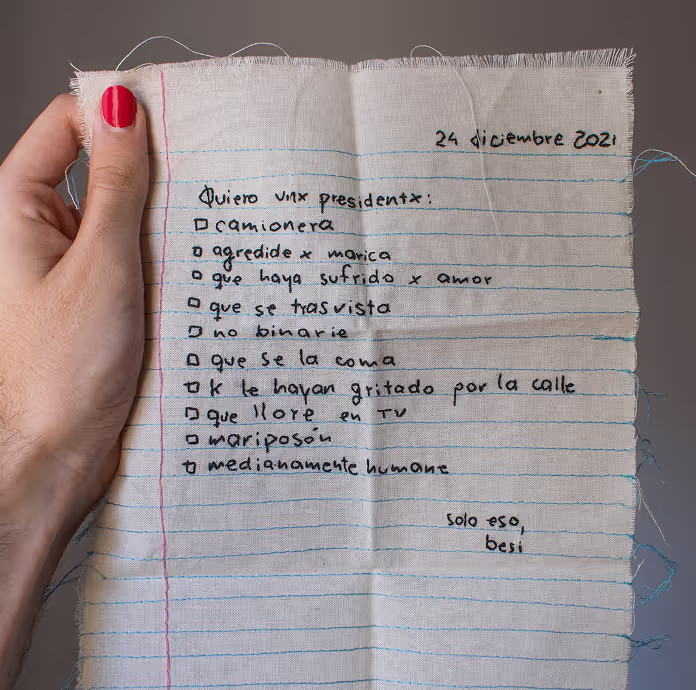 24 diciembre 2021
Quiero unx presidentx:
□ camionera
□ agredide x marica
□ que haya sufrido x amor
□ que se trasvista
□ no binarie
□ que se la coma
□ k le hayan gritado por la calle
□ que llore en TV
□ mariposón
□ medianamente humane
solo eso,
besi